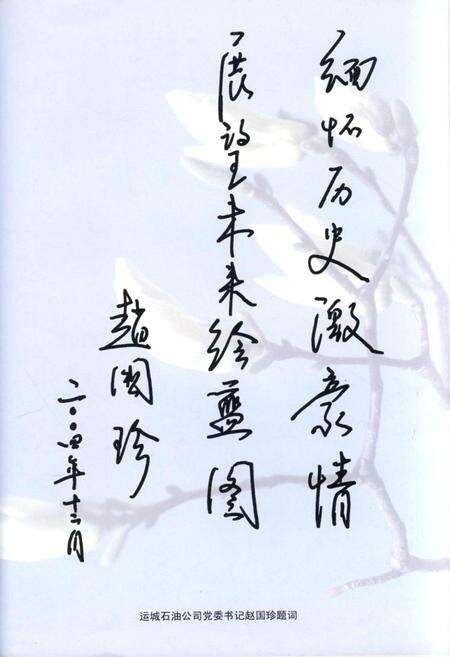 缅怀历史激豪情
展望未来绘蓝图
赵国珍
二〇〇四年十二月
运城石油公司党委书记赵国珍题词